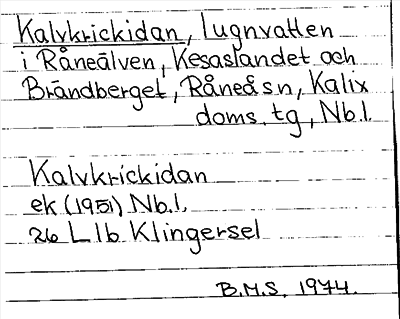 Kalvkrickidan, lugnvatten
i Råneälven, Kesaslandet och
Brändberget, Råneå sn, Kalix
doms. tg, Nb.l.
Kalvkrickidan
ek (1951) Nb.l.
26 L lb Klingersel
B.M.S. 1974.